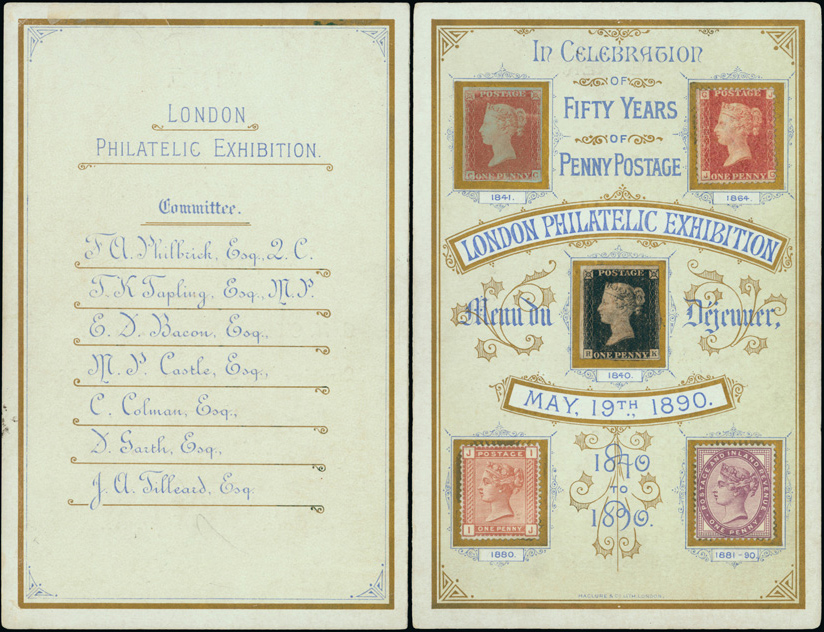 LONDON
PHILATELIC EXHIBITION.
Committee.
F. A. Philbrick, Esq., Q. C.
T. K. Tapling, Esq., M. P.
E. D. Bacon, Esq.,
M. P. Castle, Esq.,
C. Colman, Esq.,
D. Garth, Esq.,
J. A. Tilleard, Esq.
IN CELEBRATION
OF
FIFTY YEARS
OF
PENNY POSTAGE
POSTAGE
ONE PENNY
1841.
G J
POSTAGE
J ONE PENNY G
1864.
LONDON PHILATELIC EXHIBITION
Menu du Déjeuner,
POSTAGE
ONE PENNY K
1840.
MAY, 19TH, 1890.
1840
TO
1890.
J POSTAGE I
I ONE PENNY J
1880.
POSTAGE AND INLAND REVENUE
ONE PENNY
1881-90